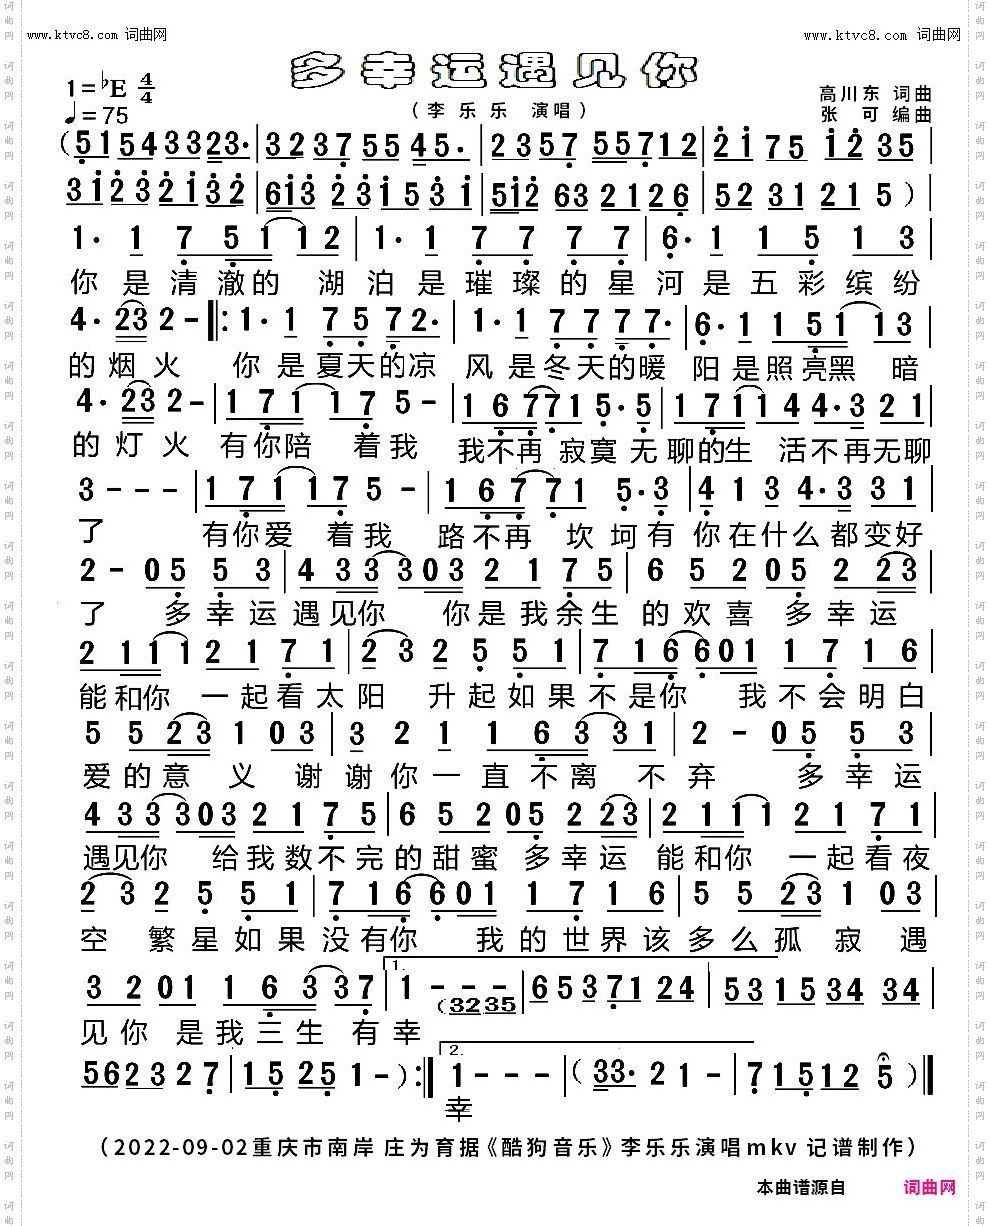 www.ktvc8.com 词曲网
www.ktvc8.com 词曲网
多幸运遇见你
1=♭E 4/4
♩=75
（李乐乐 演唱）
高川东 词曲
张可 编曲
(51543323· | 32375545· | 235755712 | 2175 1235
31232132 | 613231531 | 512632126 | 5231215 )
1· 1 7 511 12 | 1· 1 7 7 7 7 | 6· 1 1 5 1 3
你是清澈的 湖泊是璀璨的星河是五彩缤纷
4· 232- ‖: 1· 1 7572· | 1· 1 7777· | 6· 1 151113
的烟火 你是夏天的凉 风是冬天的暖 阳是照亮黑 暗
4· 232- | 171175- | 167715·5 | 1711444·321
的灯火 有你陪 着我 我不再寂寞无聊的生 活不再无聊
3--- | 171175- | 167715·3 | 4134·331
了 有你爱 着我 路不再 坎坷有 你在什么都变好
2-0553 | 4333032175 | 652052523
了 多幸运遇见你 你是我余生 的欢喜 多幸运
2112171 | 232551 | 7166011716
能和你 一起看太阳 升起如果不是你 我不会明白
5523103 | 321163331 | 2-0553
爱的意义 谢谢你一直不离 不弃 多幸运
4333032175 | 65205223 | 21112171
遇见你 给我数不完的甜蜜 多幸运 能和你 一起看夜
232551 | 7166011716 | 5523103
空 繁星如果没有你 我的世界该多么孤寂遇
320116337 | 1.1---(3235 | 6537124 | 531534 34
见你 是我三生 有幸
5623 27 | 15251-) :‖ 2.1--- | (33·21- | 715125)‖
幸
（2022-09-02重庆市南岸 庄为育据《酷狗音乐》李乐乐演唱mkv 记谱制作）
本曲谱源自 词曲网